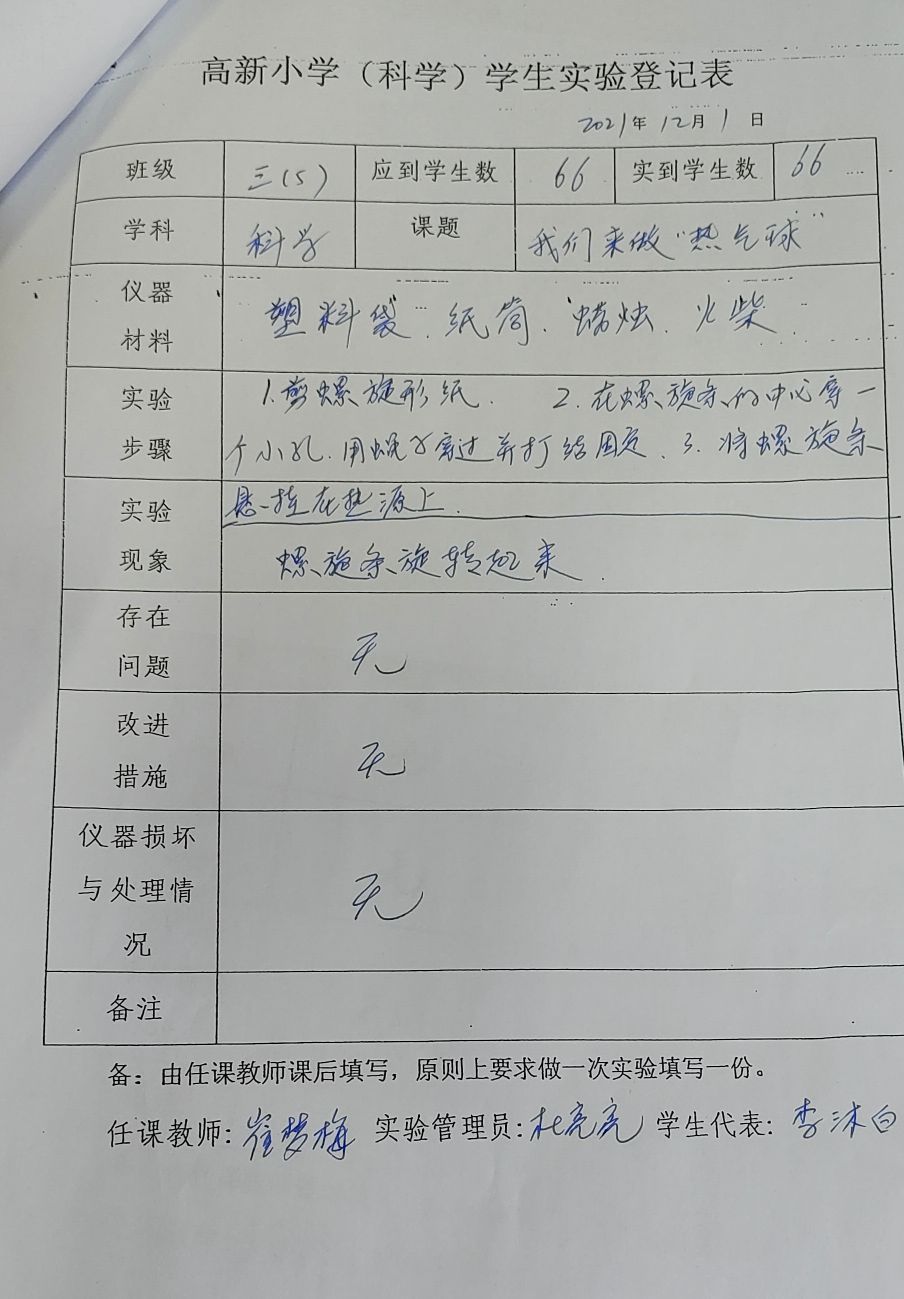 高新小学（科学）学生实验登记表
2021年12月1日
班级 三(5) 应到学生数 66 实到学生数 66
学科 科学 课题 我们来做“热气球”
仪器
材料
塑料袋、纸筒、蜡烛、火柴
实验
步骤
1.剪螺旋形纸. 2.在螺旋条的中心穿一
个小孔.用蝇子穿过并打结固定、3.将螺旋条
悬挂在热源上.
实验
现象
螺旋条旋转起来.
存在
问题
无
改进
措施
无
仪器损坏
与处理情
况
无
备注
备：由任课教师课后填写，原则上要求做一次实验填写一份。
任课教师:崔梦梅 实验管理员:杜亮亮 学生代表:李沐白